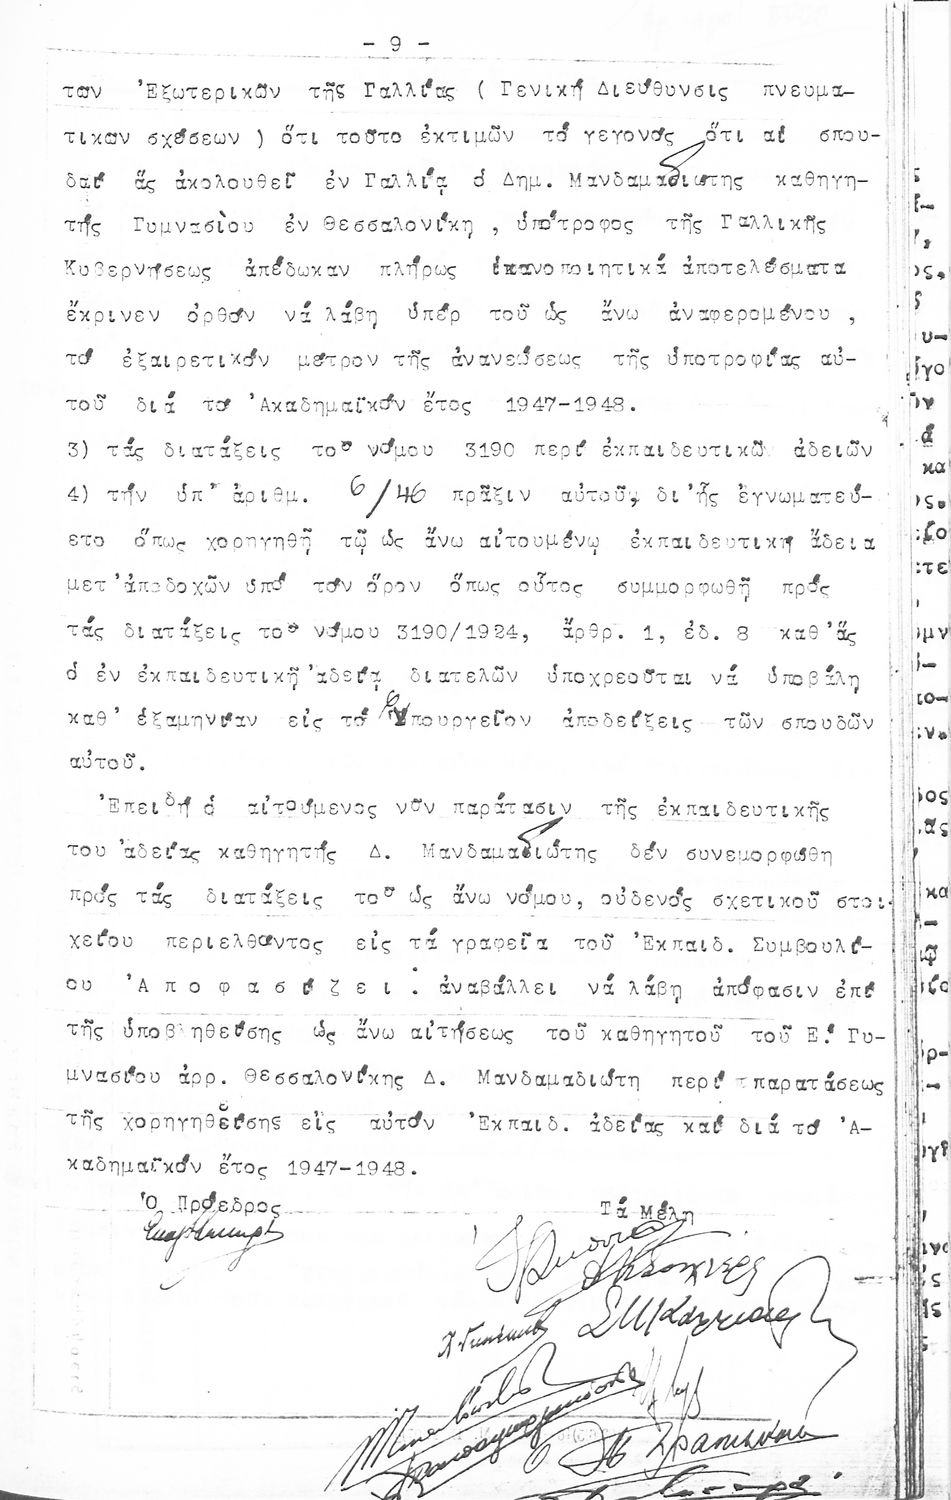 - 9 -
των Ἐξωτερικῶν τῆς Γαλλίας ( Γενική Διεύθυνσις πνευμα-
τικων σχέσεων ) ὅτι τοῦτο ἐκτιμῶν τό γεγονός ὅτι αἱ σπου-
δαί ἅς ἀκολουθεῖ ἐν Γαλλίᾳ ὁ Δημ. Μανδαμαδιωτης καθηγη-
τής Γυμνασίου ἐν Θεσσαλονίκη , ὑπότροφος τῆς Γαλλικῆς
Κυβερνήσεως ἀπέδωκαν πλήρως ἱκανοποιητικά ἀποτελέσματα
ἔκρινεν ὀρθόν νά λάβη ὑπέρ τοῦ ὡς ἄνω ἀναφερομένου ,
τό ἐξαιρετικόν μέτρον τῆς ἀνανεώσεως τῆς ὑποτροφίας αὐ-
τοῦ διά το Ἀκαδημαϊκόν ἔτος 1947-1948.
3) τάς διατάξεις τοῦ νόμου 3190 περί ἐκπαιδευτικῶν ἀδειῶν
4) τήν ὑπ' ἀριθμ. 6/46 πρᾶξιν αὐτοῦ, δι'ἧς ἐγνωματεύ-
ετο ὅπως χορηγηθῇ τῷ ὡς ἄνω αἰτουμένῳ ἐκπαιδευτική ἄδεια
μετ'ἀποδοχῶν ὑπό τον ὅρον ὅπως οὗτος συμμορφωθῇ πρός
τάς διατάξεις τοῦ νόμου 3190/1924, ἄρθρ. 1, ἐδ. 8 καθ'ἅς
ὁ ἐν ἐκπαιδευτικῇ ἀδείᾳ διατελῶν ὑποχρεοῦται νά ὑποβάλη
καθ' ἑξαμηνίαν εἰς τό Ὑπουργεῖον ἀποδείξεις τῶν σπουδῶν
αὐτοῦ.
Ἐπειδή ὁ αἰτούμενος νῦν παράτασιν τῆς ἐκπαιδευτικῆς
του ἀδείας καθηγητής Δ. Μανδαμαδιώτης δέν συνεμορφώθη
πρός τάς διατάξεις τοῦ ὡς ἄνω νόμου, οὐδενός σχετικοῦ στοι-
χείου περιελθόντος εἰς τά γραφεῖα τοῦ Ἐκπαιδ. Συμβουλί-
ου Ἀ π ο φ α σ ί ζ ε ι : ἀναβάλλει νά λάβη ἀπόφασιν ἐπί
τῆς ὑποβληθείσης ὡς ἄνω αἰτήσεως τοῦ καθηγητοῦ τοῦ Ε! Γυ-
μνασίου ἀρρ. Θεσσαλονίκης Δ. Μανδαμαδιώτη περί παρατάσεως
τῆς χορηγηθείσης εἰς αὐτόν Ἐκπαιδ. ἀδείας καί διά τό Ἀ-
καδημαϊκόν ἔτος 1947-1948.
Ὁ Πρόεδρος
Τά Μέλη